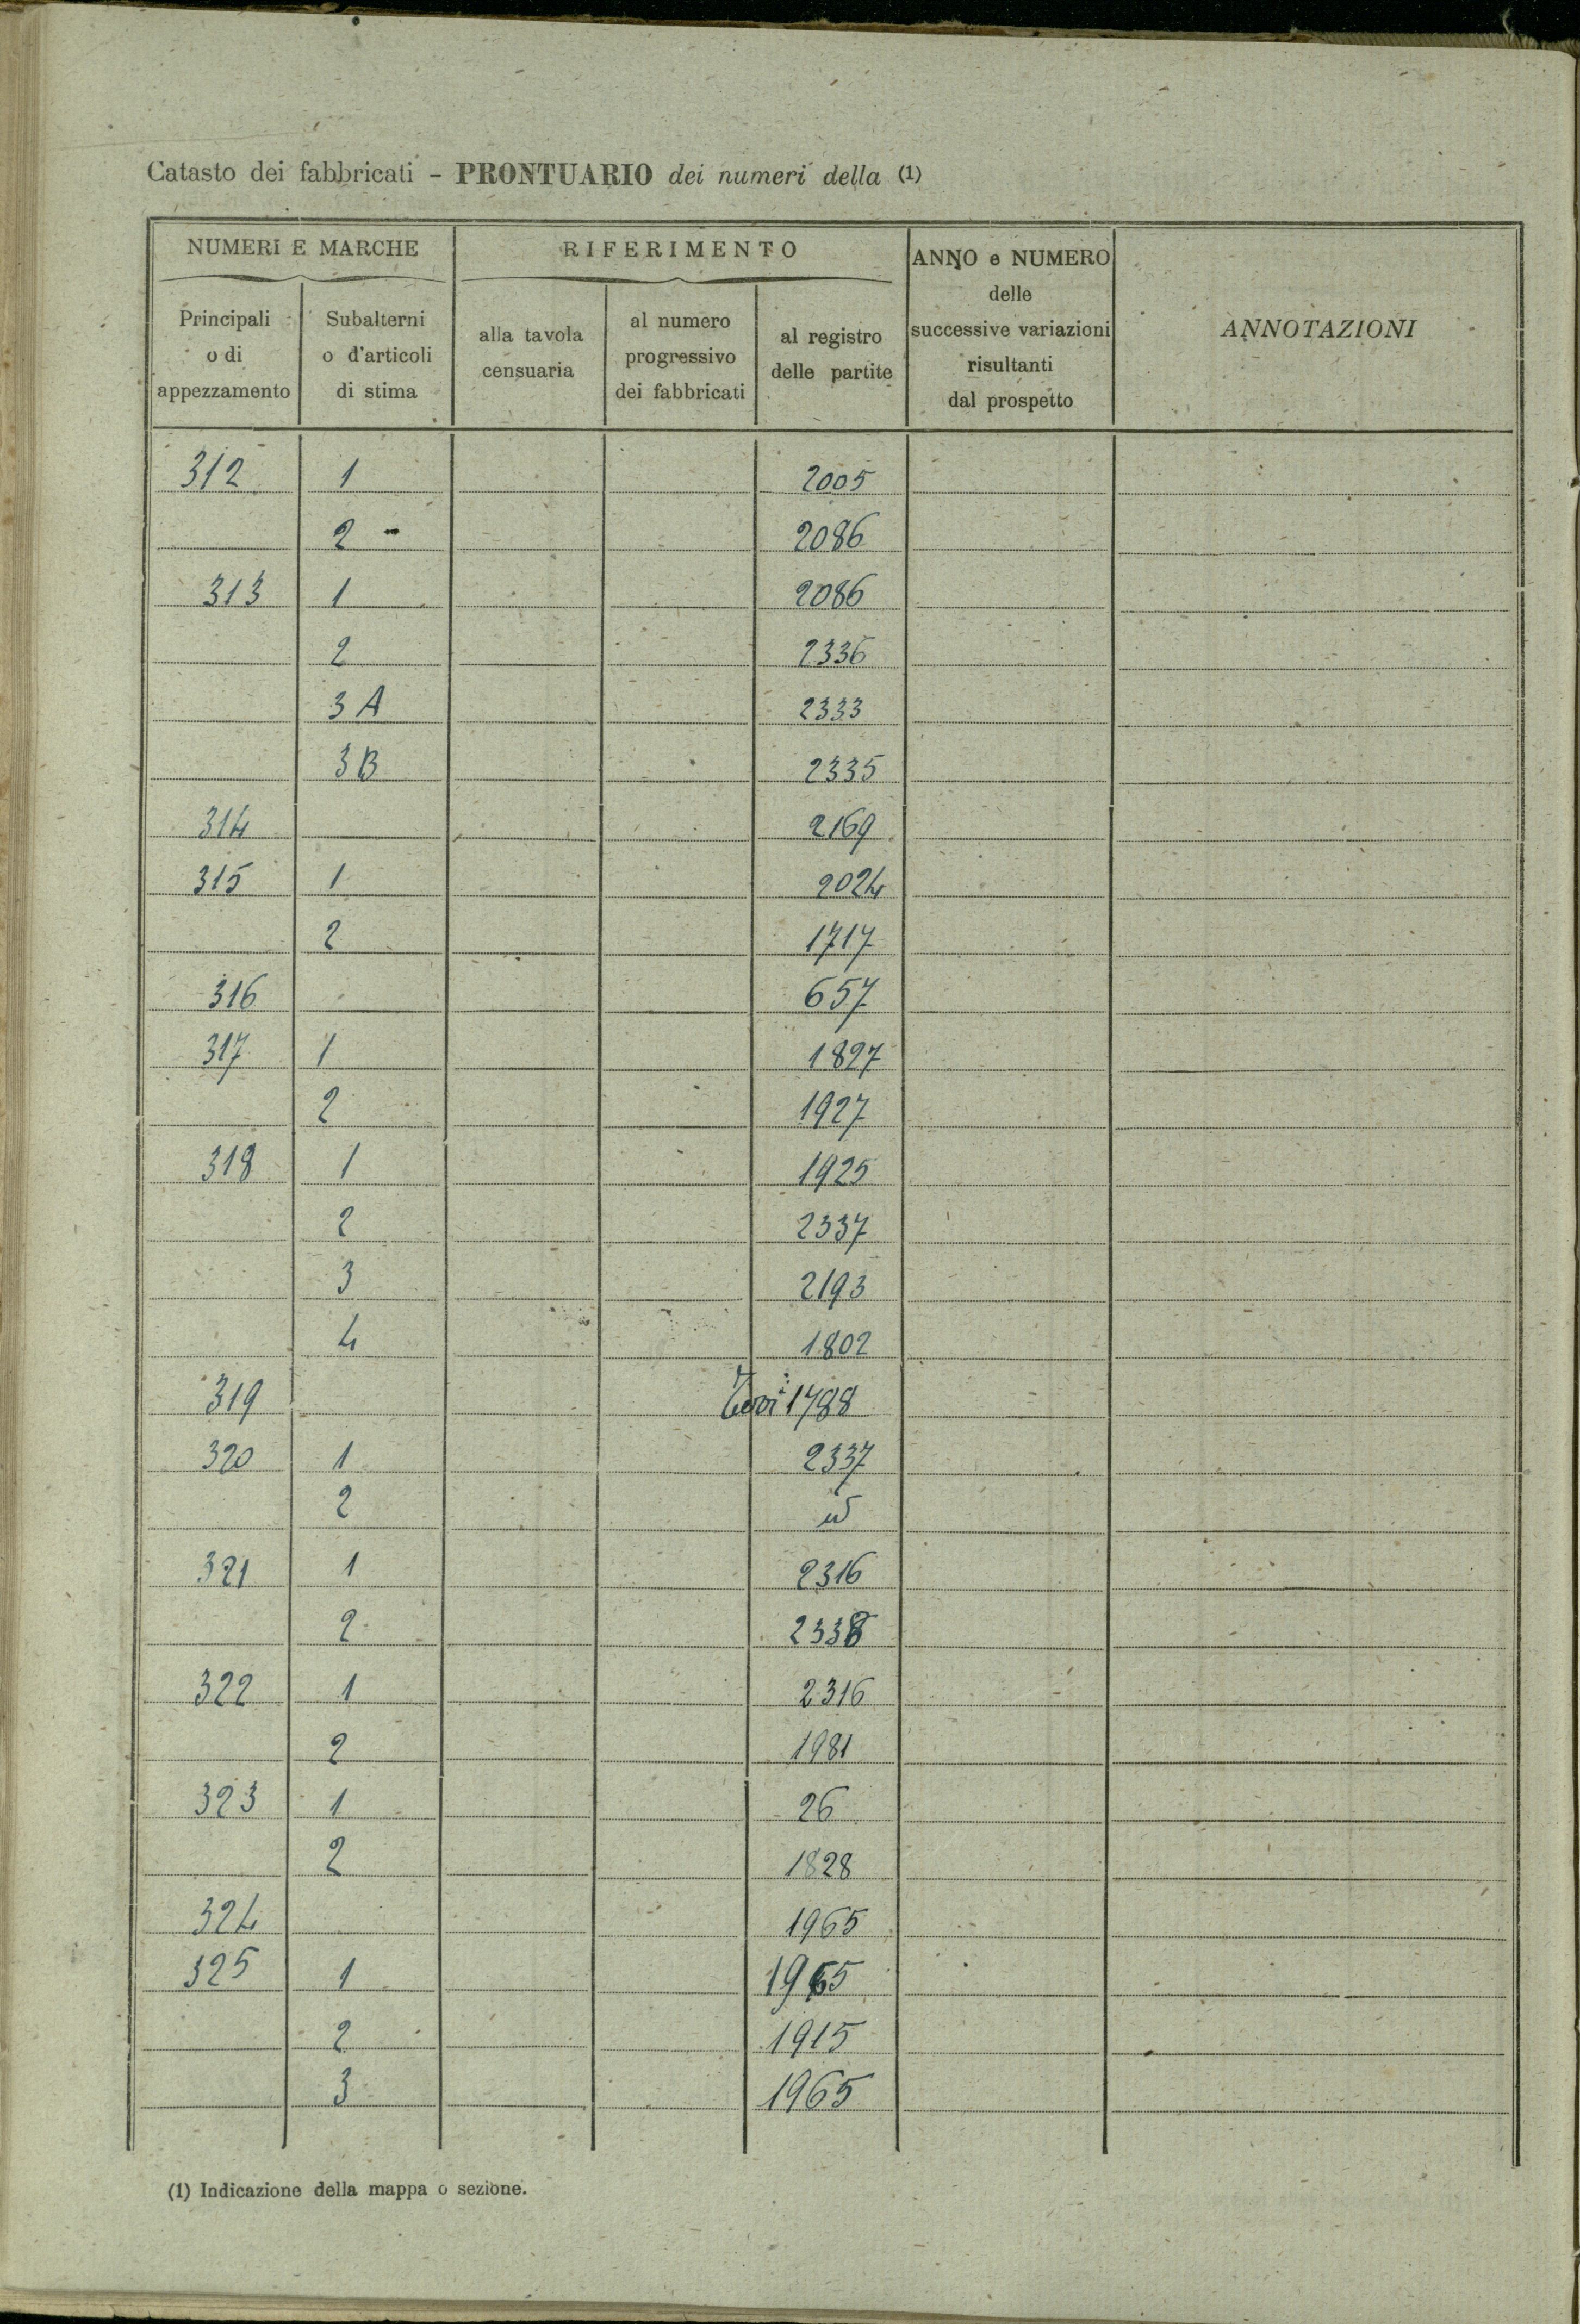 Catasto dei fabbricati - PRONTUARIO dei numeri della (1)
NUMERI E MARCHE
RIFERIMENTO
ANNO e NUMERO delle successive variazioni risultanti dal prospetto
ANNOTAZIONI
Principali o di appezzamento
Subalterni o d'articoli di stima
alla tavola censuaria
al numero progressivo dei fabbricati
al registro delle partite
312 1 2005
2 - 2086
313 1 2086
2 2336
3 A 2333
3 B 2335
314 2169
315 1 2024
2 1717
316 657
317 1 1827
2 1927
318 1 1925
2 2337
3 2193
4 1802
319 1788
320 1 2337
2 id
321 1 2316
2 2338
322 1 2316
2 1981
323 1 26
2 1828
324 1965
325 1 1965
2 1915
3 1965
(1) Indicazione della mappa o sezione.